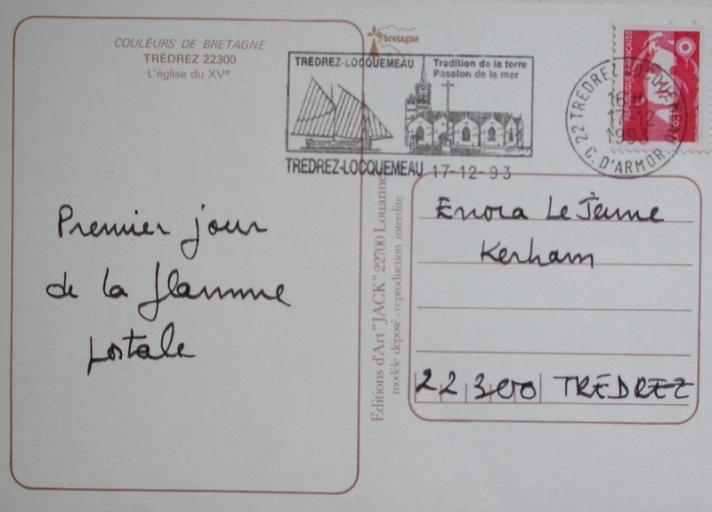 COULEURS DE BRETAGNE
TRÉDREZ 22300
L'église du XVe
bretagne
TREDREZ-LOCQUEMEAU
Tradition de la terre
Passion de la mer
TREDREZ-LOCQUEMEAU 17-12-93
RÉPUBLIQUE FRANÇAISE
22 TREDREZ
17-12
1993
C. D'ARMOR
Premier jour
de la flamme
postale
Editions d'Art "JACK" 22700 Louannec
modèle déposé - reproduction interdite
Enora Le Jeune
Kerham
22300 TRÉDREZ